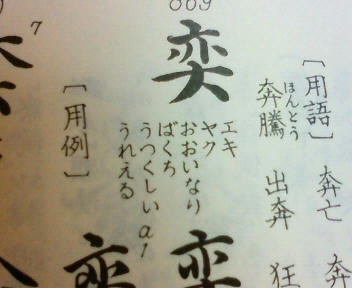 〔用語〕奔亡 奔
奔騰 出奔 狂
ほんとう
009
奕
エキ
ヤク
おおいなり
ばくち
うつくしいa1
うれえる
奕
〔用例〕
奕
7